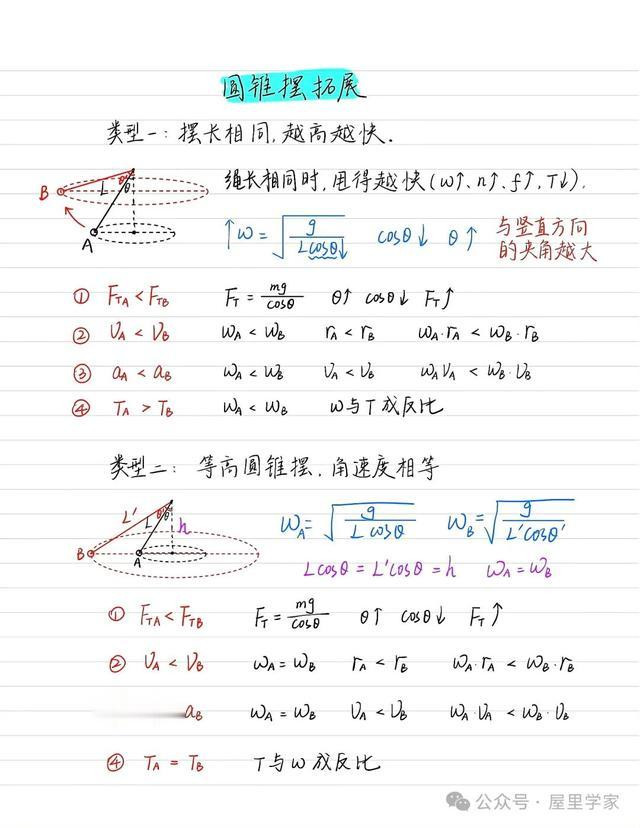 圆锥摆拓展
类型一：摆长相同，越高越快．
绳长相同时，甩得越快（ω↑、n↑、f↑，T↓）．
B L θ' θ A
↑ω=√(g/(Lcosθ↓)) cosθ↓ θ↑ 与竖直方向的夹角越大
① F_TA<F_TB F_T=mg/cosθ θ↑ cosθ↓ F_T↑
② υ_A<υ_B ω_A<ω_B r_A<r_B ω_A·r_A<ω_B·r_B
③ a_A<a_B ω_A<ω_B υ_A<υ_B ω_Aυ_A<ω_B·υ_B
④ T_A>T_B ω_A<ω_B ω与T成反比
类型二：等高圆锥摆．角速度相等
L' L θ' θ h B A
ω_A=√(g/(Lcosθ)) ω_B=√(g/(L'cosθ'))
Lcosθ=L'cosθ'=h ω_A=ω_B
① F_TA<F_TB F_T=mg/cosθ θ↑ cosθ↓ F_T↑
② υ_A<υ_B ω_A=ω_B r_A<r_B ω_A·r_A<ω_B·r_B
a_B ω_A=ω_B υ_A<υ_B ω_A·υ_A<ω_B·υ_B
④ T_A=T_B T与ω成反比
公众号·屋里学家